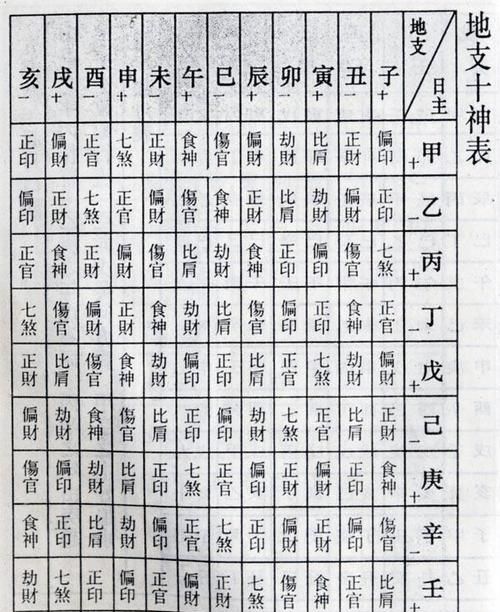 地支十神表
地支 日主
子+ 丑− 寅+ 卯− 辰+ 巳− 午+ 未− 申+ 酉− 戌+ 亥−
甲+ 偏印 正財 比肩 劫財 偏財 傷官 食神 正財 七煞 正官 偏財 正印
乙− 正印 偏財 劫財 比肩 正財 食神 傷官 偏財 正官 七煞 正財 偏印
丙+ 七煞 傷官 偏印 正印 食神 劫財 比肩 傷官 偏財 正財 食神 正官
丁− 正官 食神 正印 偏印 傷官 比肩 劫財 食神 正財 偏財 傷官 七煞
戊+ 偏財 劫財 七煞 正官 比肩 正印 偏印 劫財 食神 傷官 比肩 正財
己− 正財 比肩 正官 七煞 劫財 偏印 正印 比肩 傷官 食神 劫財 偏財
庚+ 食神 正印 偏財 正財 偏印 正官 七煞 正印 比肩 劫財 偏印 傷官
辛− 傷官 偏印 正財 偏財 正印 七煞 正官 偏印 劫財 比肩 正印 食神
壬+ 比肩 正官 食神 傷官 七煞 正財 偏財 正官 偏印 正印 七煞 劫財